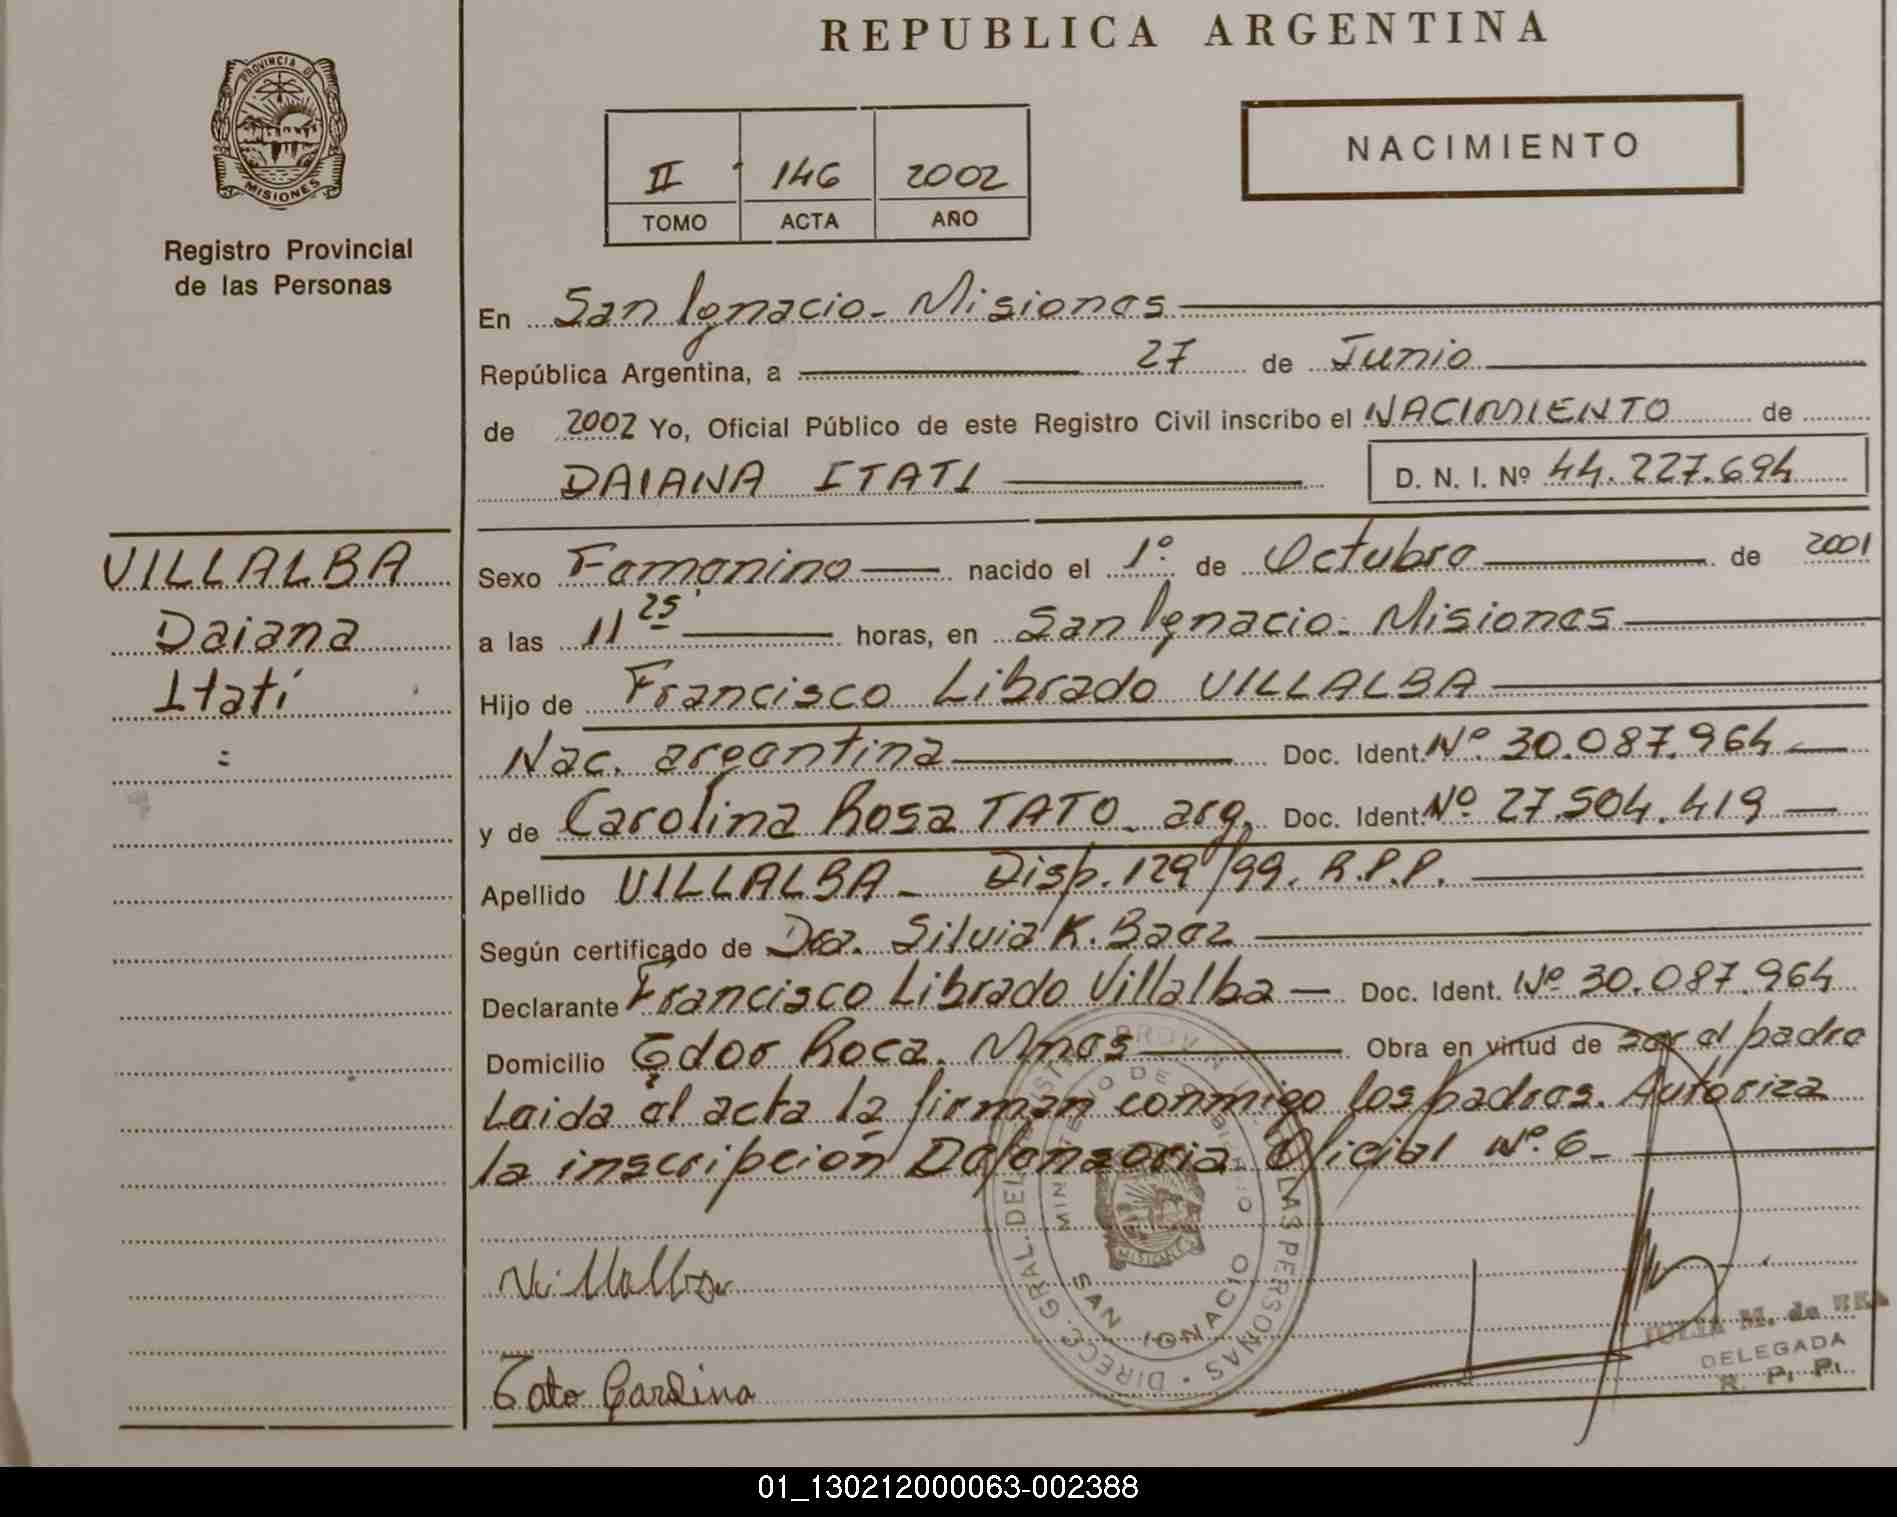 REPUBLICA ARGENTINA
PROVINCIA DE
MISIONES
Registro Provincial
de las Personas
II 146 2002
TOMO ACTA AÑO
NACIMIENTO
En San Ignacio - Misiones
República Argentina, a 27 de Junio
de 2002 Yo, Oficial Público de este Registro Civil inscribo el NACIMIENTO de
DAIANA ITATI D. N. I. Nº 44.227.694
VILLALBA
Daiana
Itatí
Sexo Femenino nacido el 1º de Octubre de 2001
a las 11 25' horas, en San Ignacio - Misiones
Hijo de Francisco Librado VILLALBA
Nac. argentina Doc. Ident. Nº 30.087.964
y de Carolina Rosa TATO - arg. Doc. Ident. Nº 27.504.419
Apellido VILLALBA - Disp. 129/99. R.P.P.
Según certificado de Dra. Silvia K. Baez
Declarante Francisco Librado Villalba Doc. Ident. Nº 30.087.964
Domicilio Gdor Roca. Mnes Obra en virtud de ser el padre
Leida el acta la firman conmigo los padres. Autoriza
la inscripción Defensoria Oficial Nº 6
Villalba
Tato Carolina
DIREC. GRAL. DEL LAS PERSONAS
MINISTERIO DE GOBIERNO
MISIONES
SAN IGNACIO
M. de
DELEGADA
R. P. P.
01_130212000063-002388